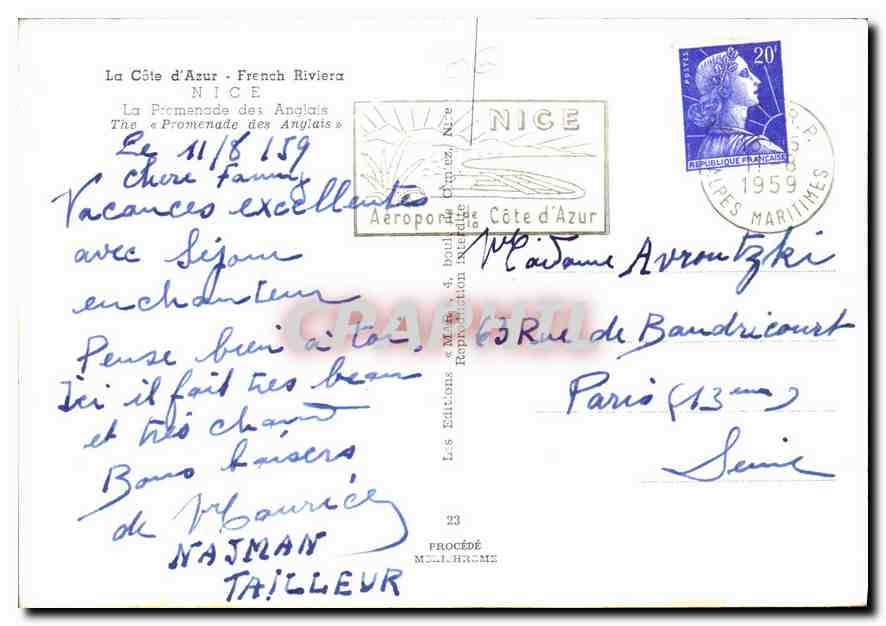 La Côte d'Azur - French Riviera
NICE
La Promenade des Anglais
The « Promenade des Anglais »
Le 11/8/59
Chere Fanny
Vacances excellentes
avec Séjour
enchanteur
Pense bien à toi,
Ici il fait tres beau
et très chaud
Bons baisers
de Maurice
NAJMAN
TAILLEUR
Les Editions « MAR », 4, boul. de Cimiez, Nice
Reproduction interdite
23
PROCÉDÉ
MEXICHROME
NICE
Aéroport de la Côte d'Azur
POSTES
20F
REPUBLIQUE FRANÇAISE
R.P.
1959
ALPES MARITIMES
Madame Avroutzki
63 Rue de Baudricourt
Paris (13eme)
Seine